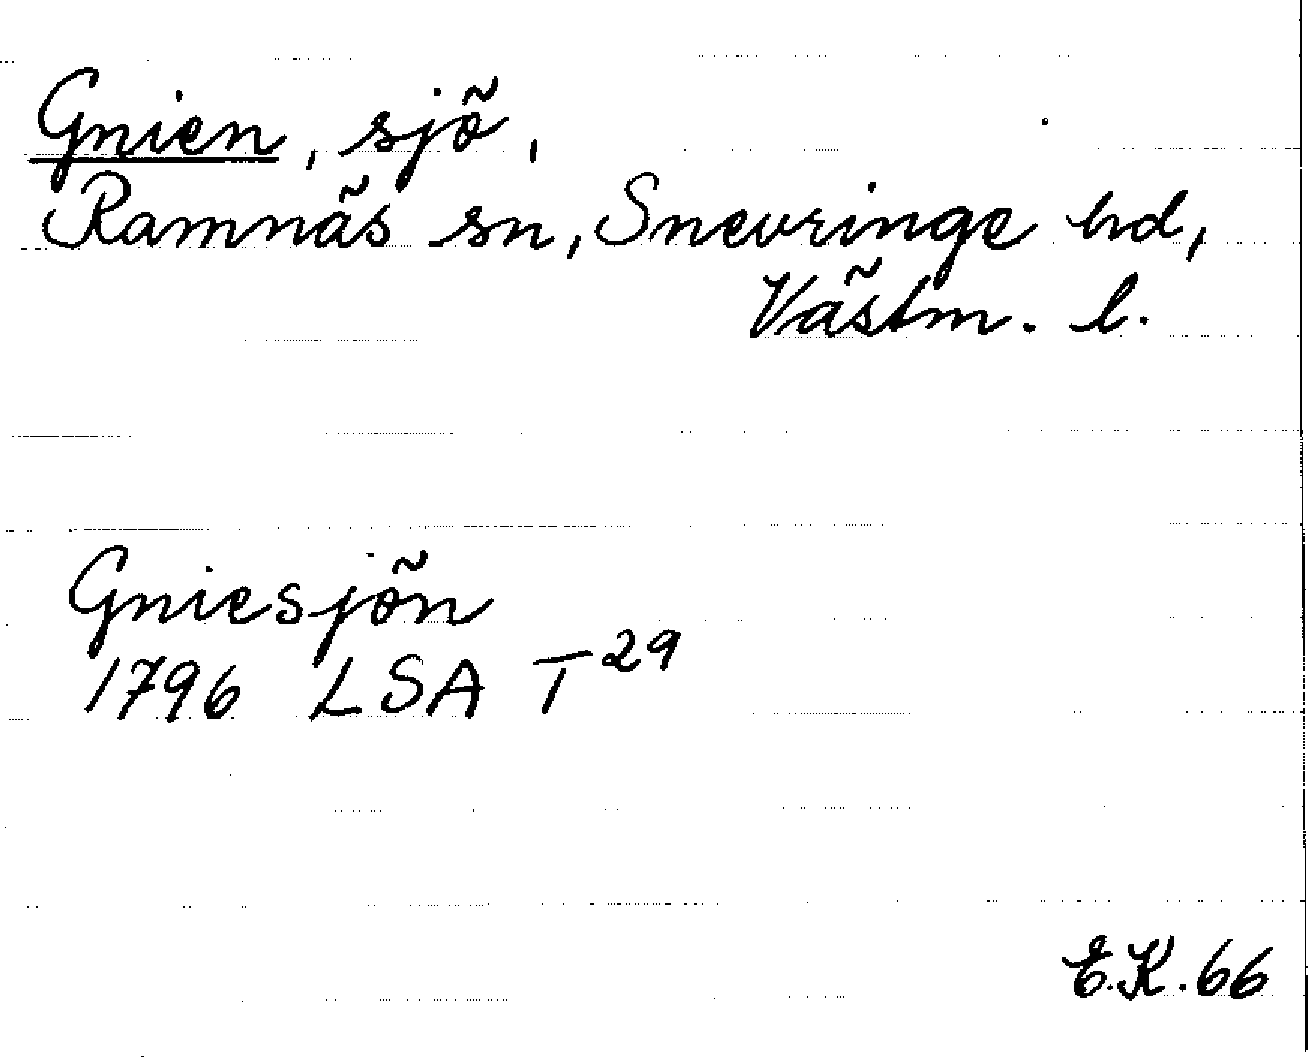 Gnien, sjö,
Ramnäs sn, Snevringe hd,
Västm. l.
Gniesjön
1796 LSA T²⁹
E.K. 66